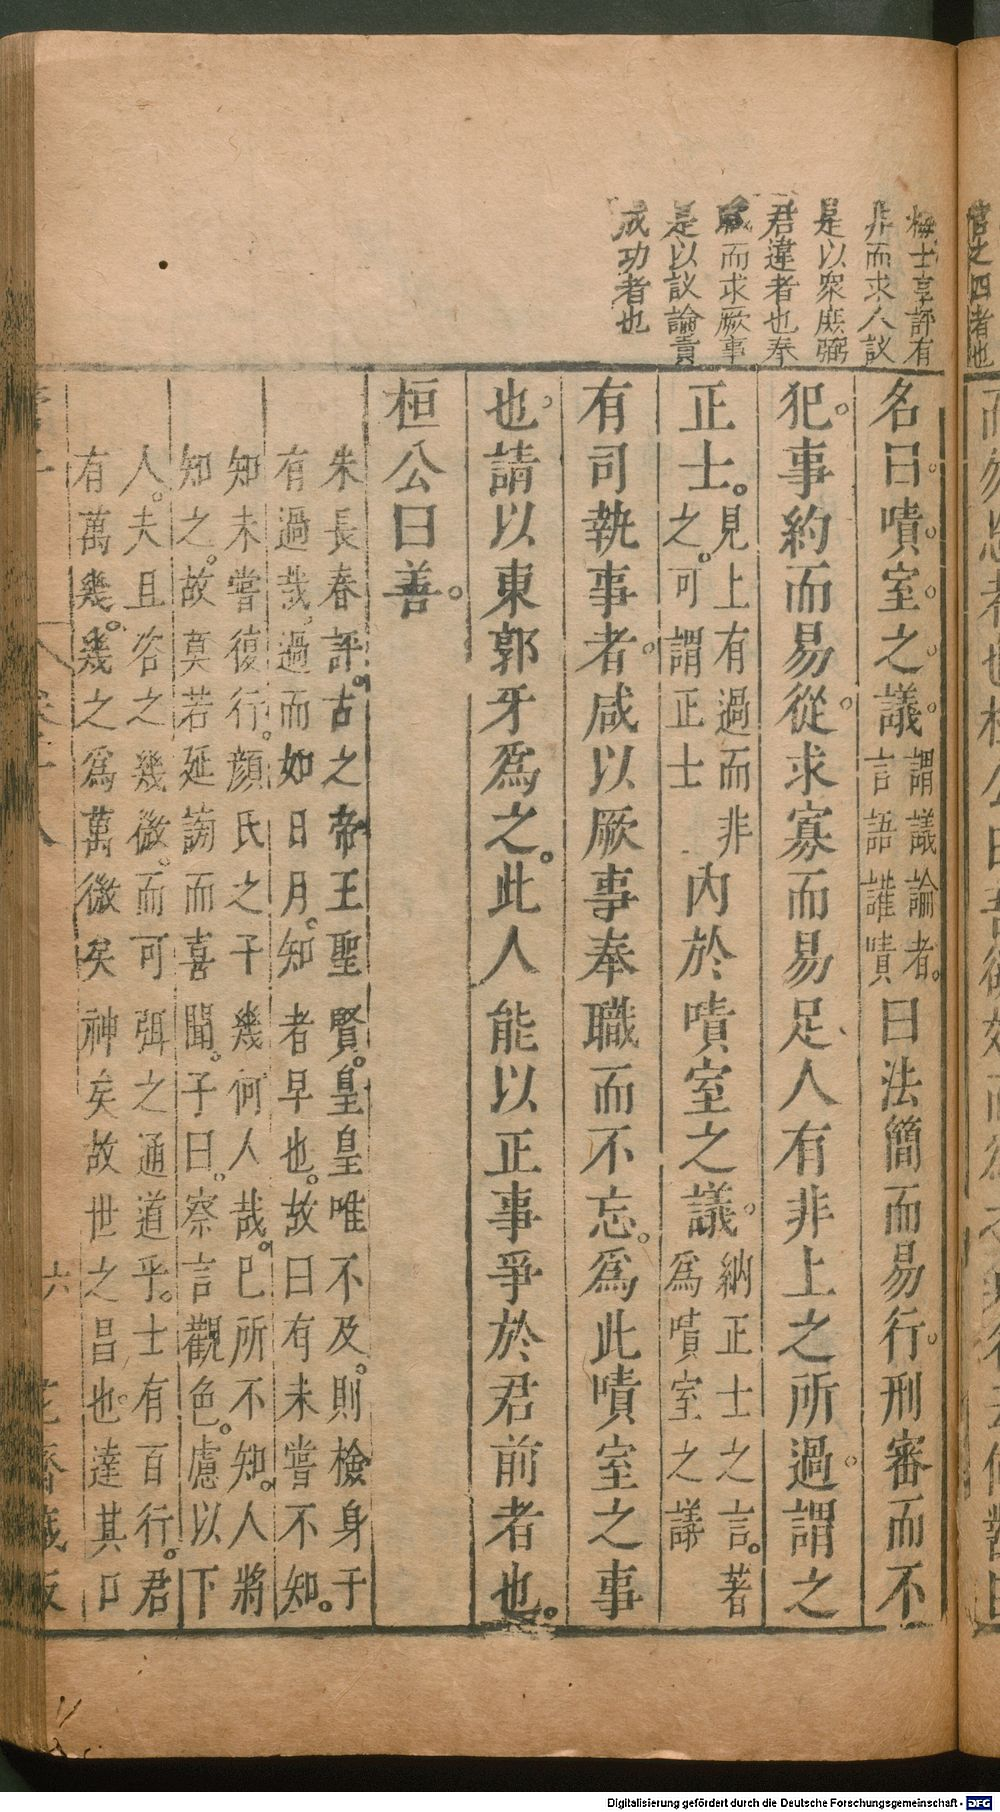 梅士享評有
非而求人議
是以衆庶弼
君違者也奉
職而求厥事
是以議論責
成功者也
名曰嘖室之議謂議論者言語讙嘖曰法簡而易行刑審而不
犯事約而易從求寡而易足人有非上之所過謂之
正士見上有過而非之可謂正士內於嘖室之議納正士之言著爲嘖室之議
有司執事者咸以厥事奉職而不忘爲此嘖室之事
也請以東郭牙爲之此人能以正事爭於君前者也
桓公曰善
朱長春評古之帝王聖賢皇皇唯不及則檢身于
有過哉過而如日月知者早也故曰有未嘗不知
知未嘗復行顏氏之子幾何人哉已所不知人將
知之故莫若延謗而喜聞子曰察言觀色慮以下
人夫且咨之幾微而可弭之通道乎士有百行君
有萬幾幾之爲萬微矣神矣故世之昌也達其口
六
花齋藏板
Digitalisierung gefördert durch die Deutsche Forschungsgemeinschaft - DFG